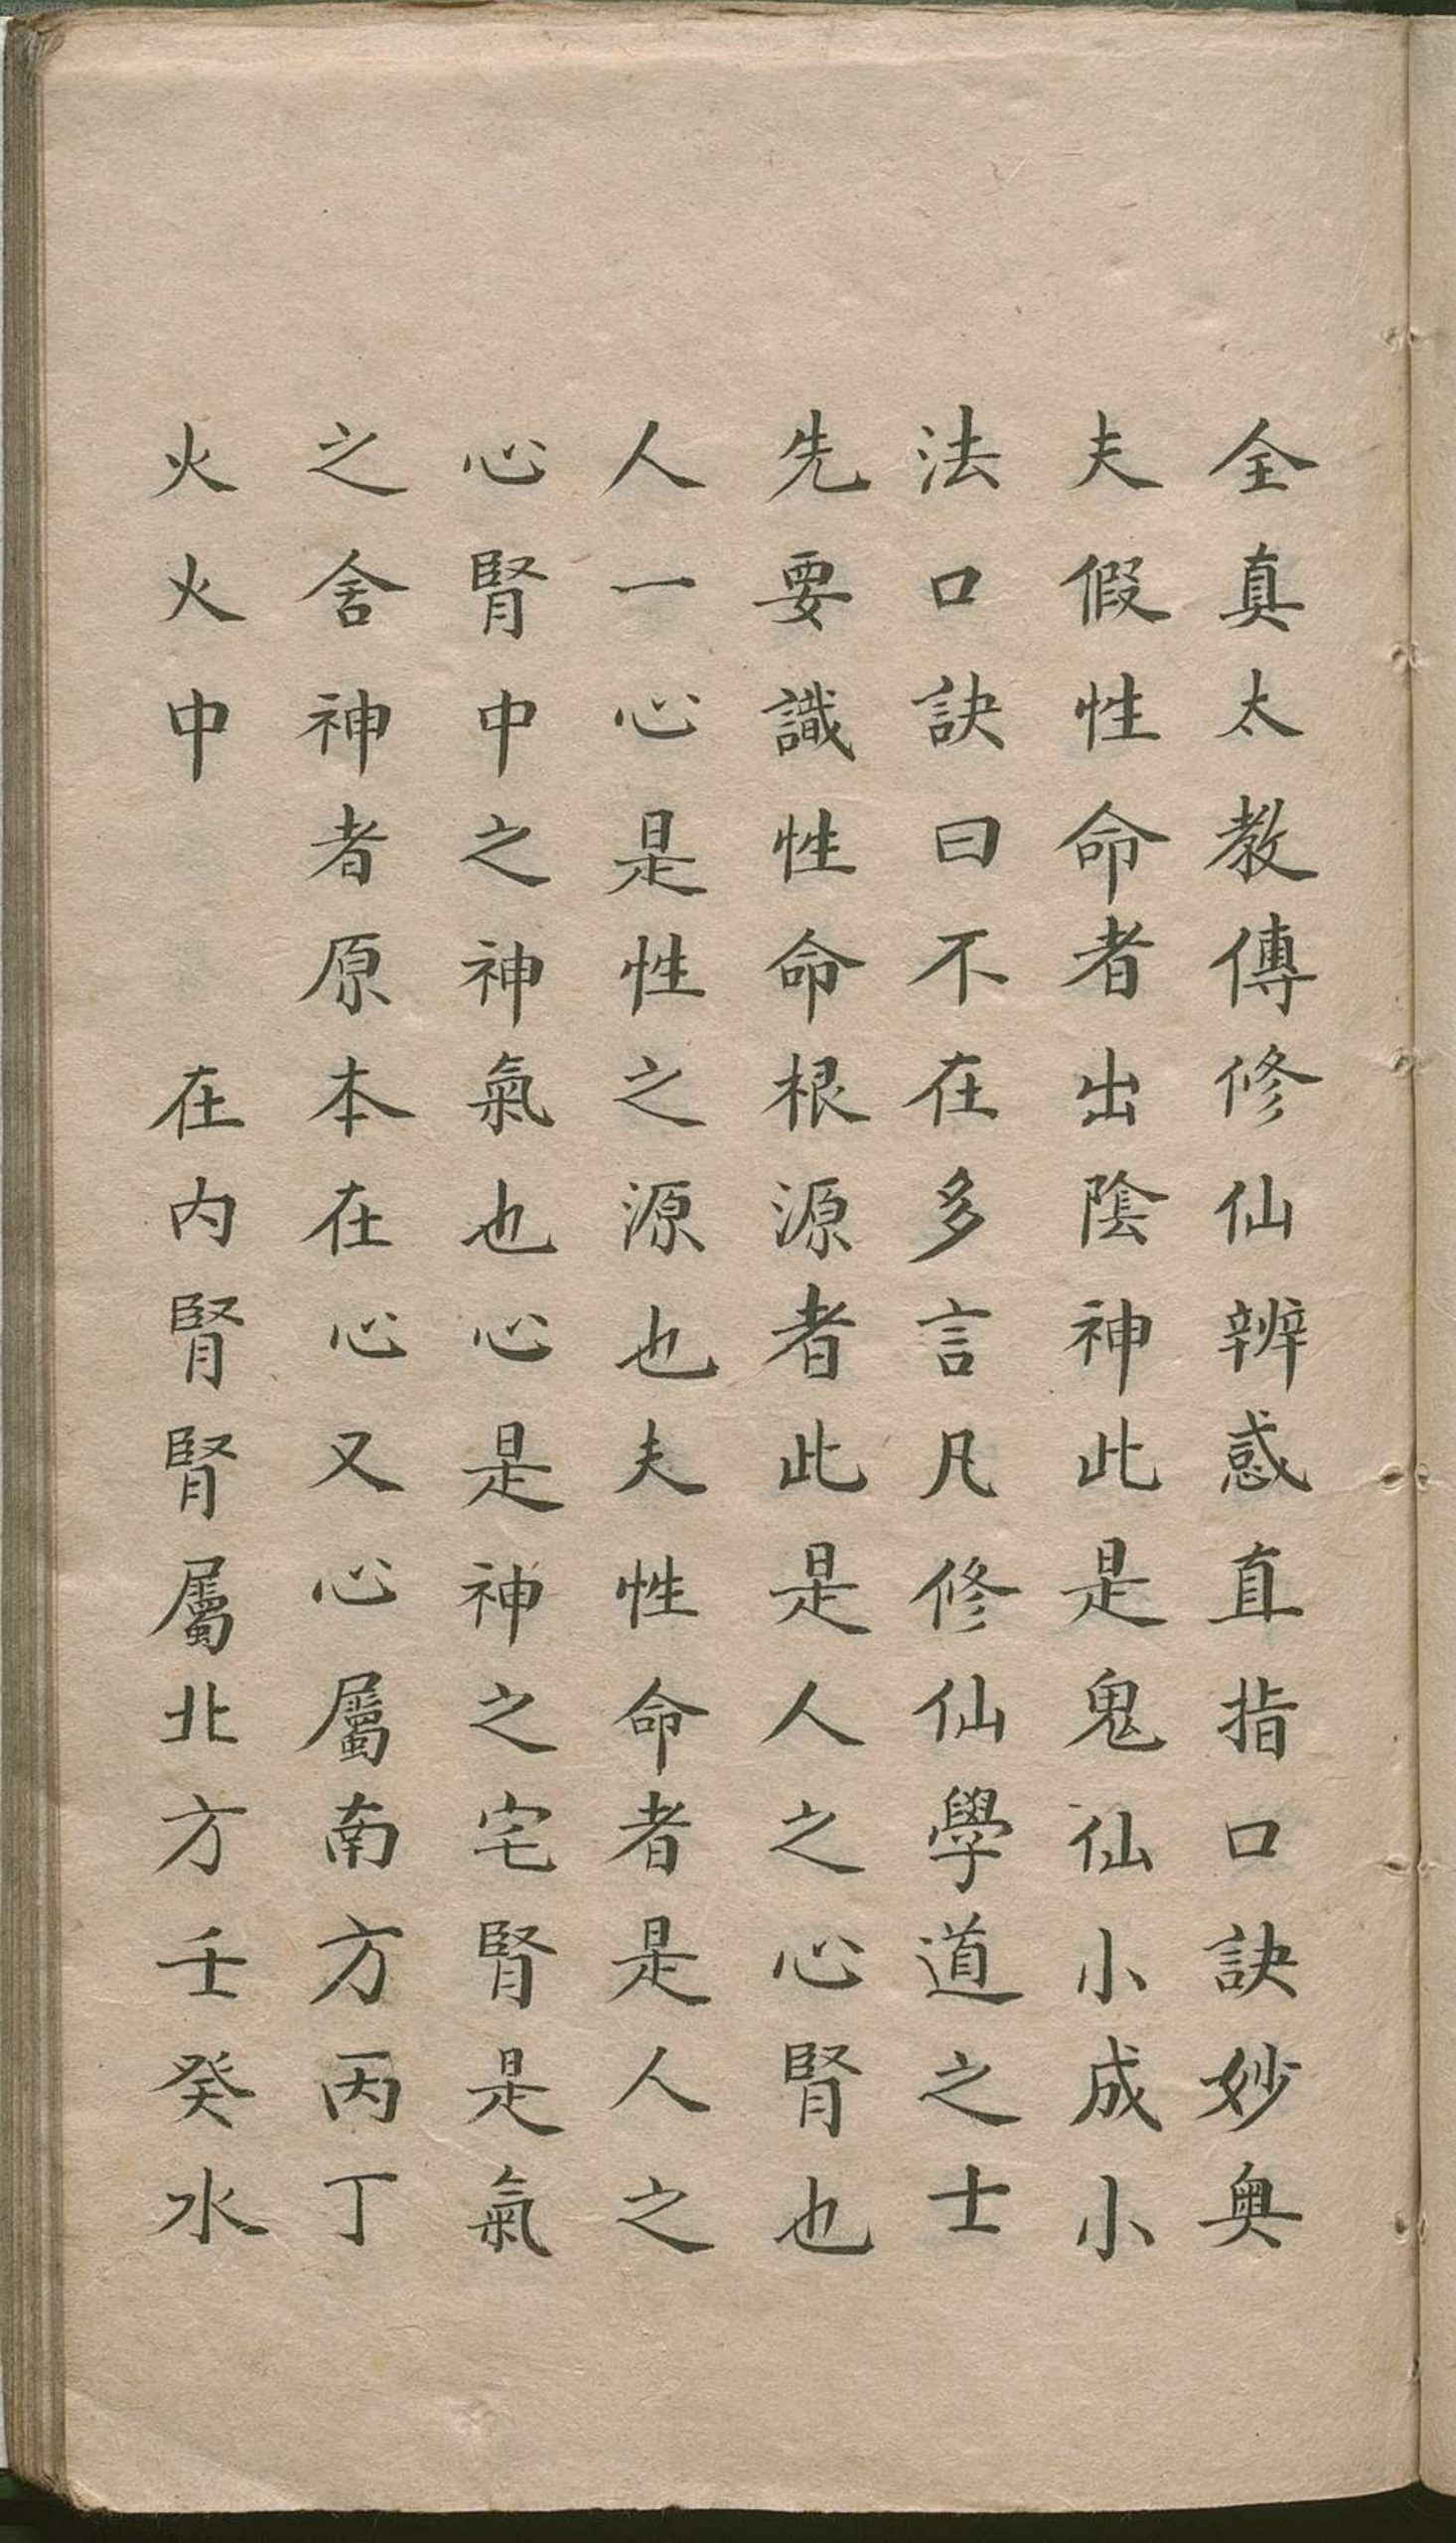 全真太教傳修仙辨惑直指口訣妙奥
夫假性命者出陰神此是鬼仙小成小
法口訣曰不在多言凡修仙學道之士
先要識性命根源者此是人之心腎也
人一心是性之源也夫性命者是人之
心腎中之神氣也心是神之宅腎是氣
之舍神者原本在心又心屬南方丙丁
火火中　　在内腎腎屬北方壬癸水